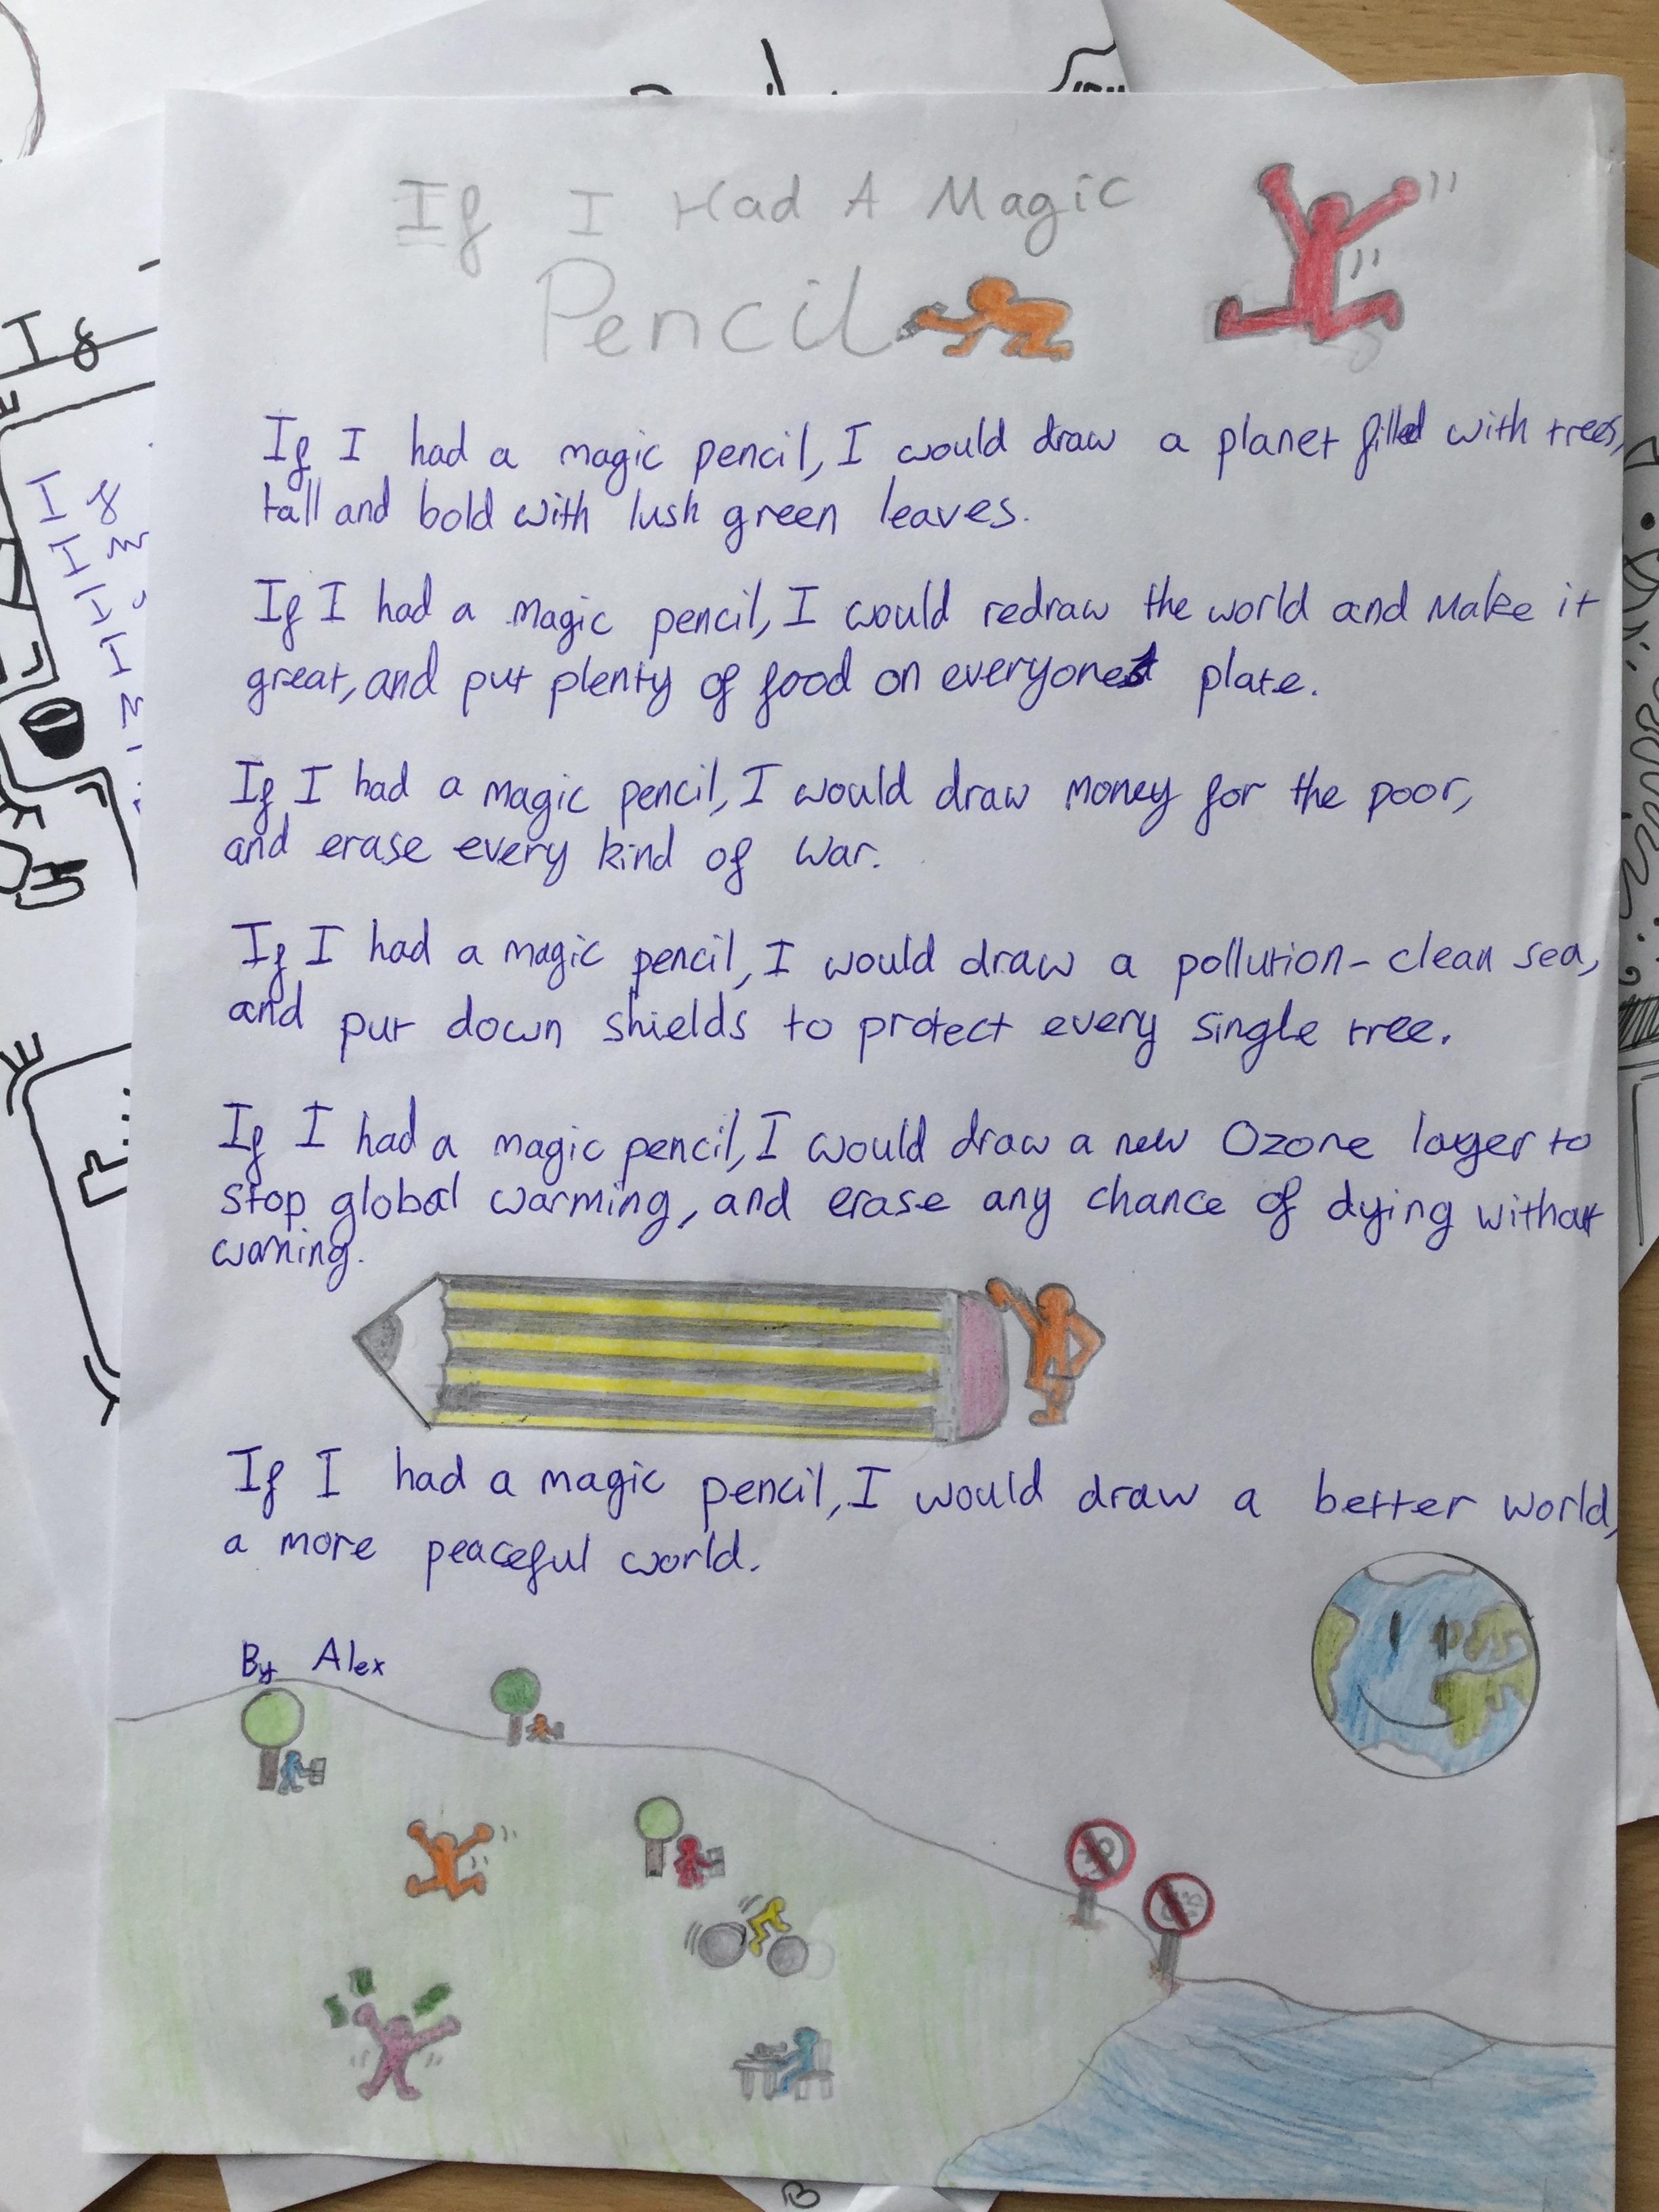 If I Had A Magic
Pencil
If I had a magic pencil, I would draw a planet filled with trees,
tall and bold with lush green leaves.
If I had a magic pencil, I would redraw the world and make it
great, and put plenty of food on everyones plate.
If I had a magic pencil, I would draw money for the poor,
and erase every kind of war.
If I had a magic pencil, I would draw a pollution-clean sea,
and put down shields to protect every single tree.
If I had a magic pencil, I would draw a new Ozone layer to
stop global warming, and erase any chance of dying without
warning.
If I had a magic pencil, I would draw a better world,
a more peaceful world.
By Alex
If
If
I
I
I